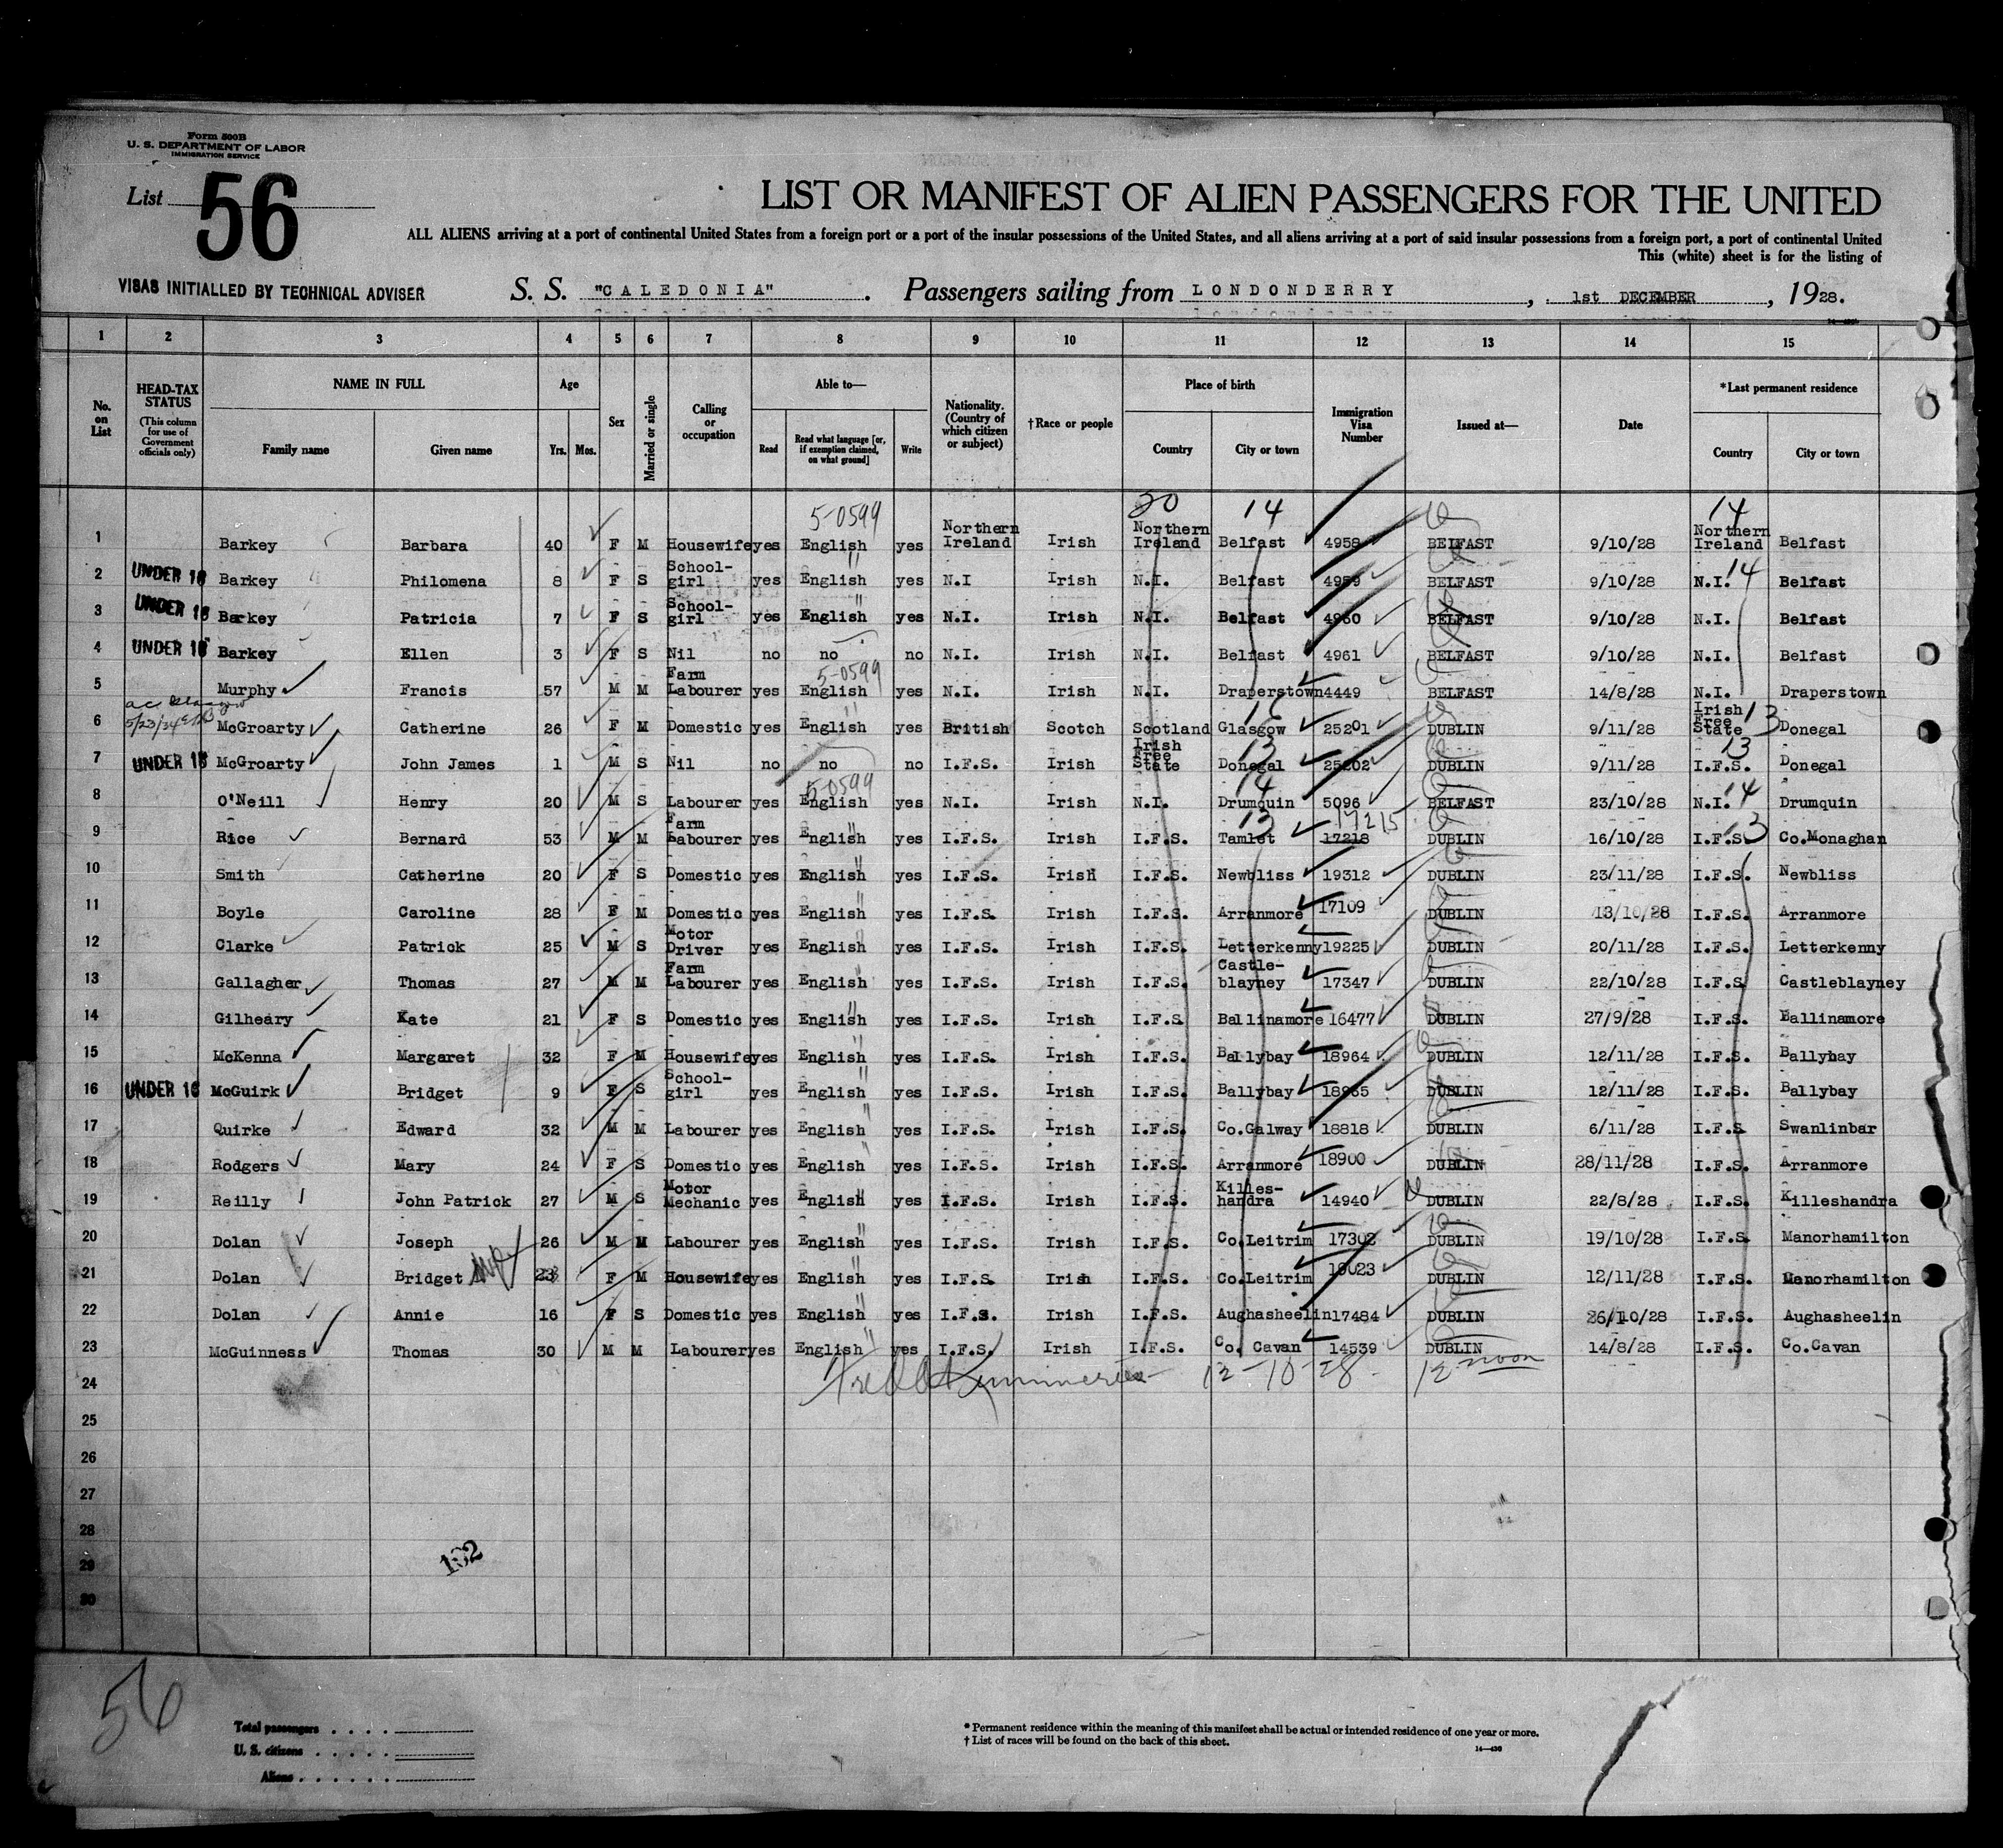 Form 500B
U. S. DEPARTMENT OF LABOR
IMMIGRATION SERVICE
List 56
LIST OR MANIFEST OF ALIEN PASSENGERS FOR THE UNITED
ALL ALIENS arriving at a port of continental United States from a foreign port or a port of the insular possessions of the United States, and all aliens arriving at a port of said insular possessions from a foreign port, a port of continental United
This (white) sheet is for the listing of
VISAS INITIALLED BY TECHNICAL ADVISER
S. S. "CALEDONIA". Passengers sailing from LONDONDERRY, 1st DECEMBER, 1928.
1 2 3 4 5 6 7 8 9 10 11 12 13 14 15
No. on List
HEAD-TAX STATUS (This column for use of Government officials only)
NAME IN FULL Family name Given name
Age Yrs. Mos.
Sex
Married or single
Calling or occupation
Able to— Read Read what language [or, if exemption claimed, on what ground] Write
Nationality. (Country of which citizen or subject)
†Race or people
Place of birth Country City or town
Immigration Visa Number
Issued at—
Date
*Last permanent residence Country City or town
5-0599 20 14 14
1 Barkey Barbara 40 F M Housewife yes English yes Northern Ireland Irish Northern Ireland Belfast 4958 BELFAST 9/10/28 Northern Ireland Belfast
2 UNDER 16 Barkey Philomena 8 F S School-girl yes English " yes N.I Irish N.I. Belfast 4959 BELFAST 9/10/28 N.I. 14 Belfast
3 UNDER 16 Barkey Patricia 7 F S School-girl yes English " yes N.I. Irish N.I. Belfast 4960 BELFAST 9/10/28 N.I. Belfast
4 UNDER 16 Barkey Ellen 3 F S Nil no no no N.I. Irish N.I. Belfast 4961 BELFAST 9/10/28 N.I. Belfast
5 Murphy Francis 57 M M Farm Labourer yes English 5-0599 yes N.I. Irish N.I. Draperstown 4449 BELFAST 14/8/28 N.I. Draperstown
6 5/23/24 McGroarty Catherine 26 F M Domestic yes English " yes British Scotch Scotland Glasgow 25201 DUBLIN 9/11/28 Irish Free State 13 Donegal
7 UNDER 16 McGroarty John James 1 M S Nil no no no I.F.S. Irish Irish Free State 13 Donegal 25202 DUBLIN 9/11/28 I.F.S. 13 Donegal
8 O'Neill Henry 20 M S Labourer yes English 5-0599 yes N.I. Irish N.I. 14 Drumquin 5096 BELFAST 23/10/28 N.I. 14 Drumquin
9 Rice Bernard 53 M M Farm Labourer yes English " yes I.F.S. Irish I.F.S. 13 Tamlet 17218 17215 DUBLIN 16/10/28 I.F.S. 13 Co.Monaghan
10 Smith Catherine 20 F S Domestic yes English " yes I.F.S. Irish I.F.S. Newbliss 19312 DUBLIN 23/11/28 I.F.S. Newbliss
11 Boyle Caroline 28 F M Domestic yes English " yes I.F.S. Irish I.F.S. Arranmore 17109 DUBLIN 13/10/28 I.F.S. Arranmore
12 Clarke Patrick 25 M S Motor Driver yes English " yes I.F.S. Irish I.F.S. Letterkenny 19225 DUBLIN 20/11/28 I.F.S. Letterkenny
13 Gallagher Thomas 27 M M Farm Labourer yes English " yes I.F.S. Irish I.F.S. Castle-blayney 17347 DUBLIN 22/10/28 I.F.S Castleblayney
14 Gilheary Kate 21 F S Domestic yes English " yes I.F.S. Irish I.F.S Ballinamore 16477 DUBLIN 27/9/28 I.F.S. Ballinamore
15 McKenna Margaret 32 F M Housewife yes English " yes I.F.S. Irish I.F.S. Ballybay 18964 DUBLIN 12/11/28 I.F.S. Ballybay
16 UNDER 16 McGuirk Bridget 9 F S School-girl yes English " yes I.F.S. Irish I.F.S. Ballybay 18965 DUBLIN 12/11/28 I.F.S. Ballybay
17 Quirke Edward 32 M M Labourer yes English " yes I.F.S. Irish I.F.S. Co.Galway 18818 DUBLIN 6/11/28 I.F.S Swanlinbar
18 Rodgers Mary 24 F S Domestic yes English " yes I.F.S. Irish I.F.S. Arranmore 18900 DUBLIN 28/11/28 I.F.S. Arranmore
19 Reilly John Patrick 27 M S Motor Mechanic yes English " yes I.F.S. Irish I.F.S. Killes-handra 14940 DUBLIN 22/8/28 I.F.S. Killeshandra
20 Dolan Joseph 26 M M Labourer yes English " yes I.F.S. Irish I.F.S. Co.Leitrim 17302 DUBLIN 19/10/28 I.F.S. Manorhamilton
21 Dolan Bridget 23 F M Housewife yes English " yes I.F.S Irish I.F.S. Co.Leitrim DUBLIN 12/11/28 I.F.S. Manorhamilton
22 Dolan Annie 16 F S Domestic yes English " yes I.F.s. Irish I.F.S. Aughasheelin 17484 DUBLIN 26/10/28 I.F.S. Aughasheelin
23 McGuinness Thomas 30 M M Labourer yes English " yes I.F.S. Irish I.F.S. Co. Cavan 14539 DUBLIN 14/8/28 I.F.S. Co.Cavan
24 12-10-28. 12 noon
25
26
27
28
29
30
132
56
Total passengers
U. S. citizens
Aliens
* Permanent residence within the meaning of this manifest shall be actual or intended residence of one year or more.
† List of races will be found on the back of this sheet.
14—430